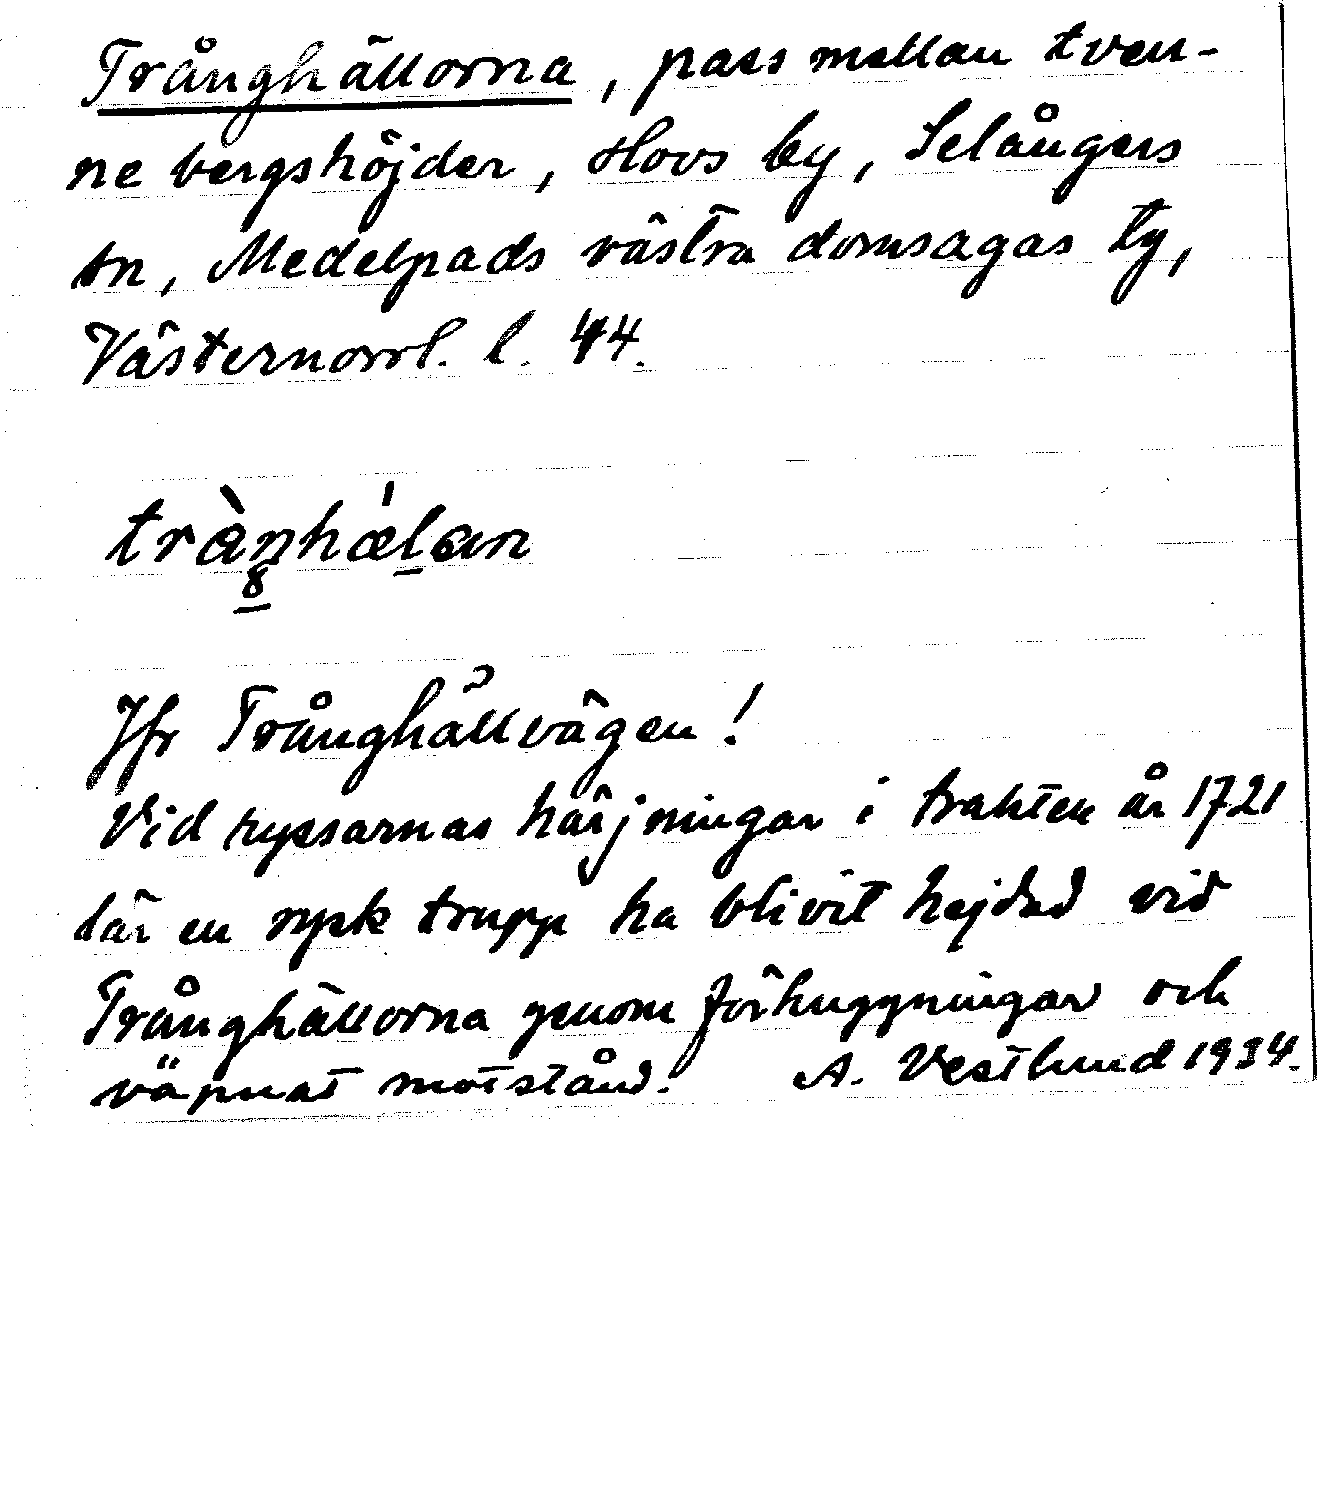 Trånghällorna, pass mellan tven-
ne bergshöjder, Hovs by, Selångers
sn, Medelpads västra domsagas tg,
Västernorrl. l. 44.
trànhǽlan
8
Jfr Trånghällvägen!
Vid ryssarnas härjningar i trakten år 1721
lär en rysk trupp ha blivit hejdad vid
Trånghällorna genom förhuggningar och
väpnat motstånd. A. Vestlund 1934.